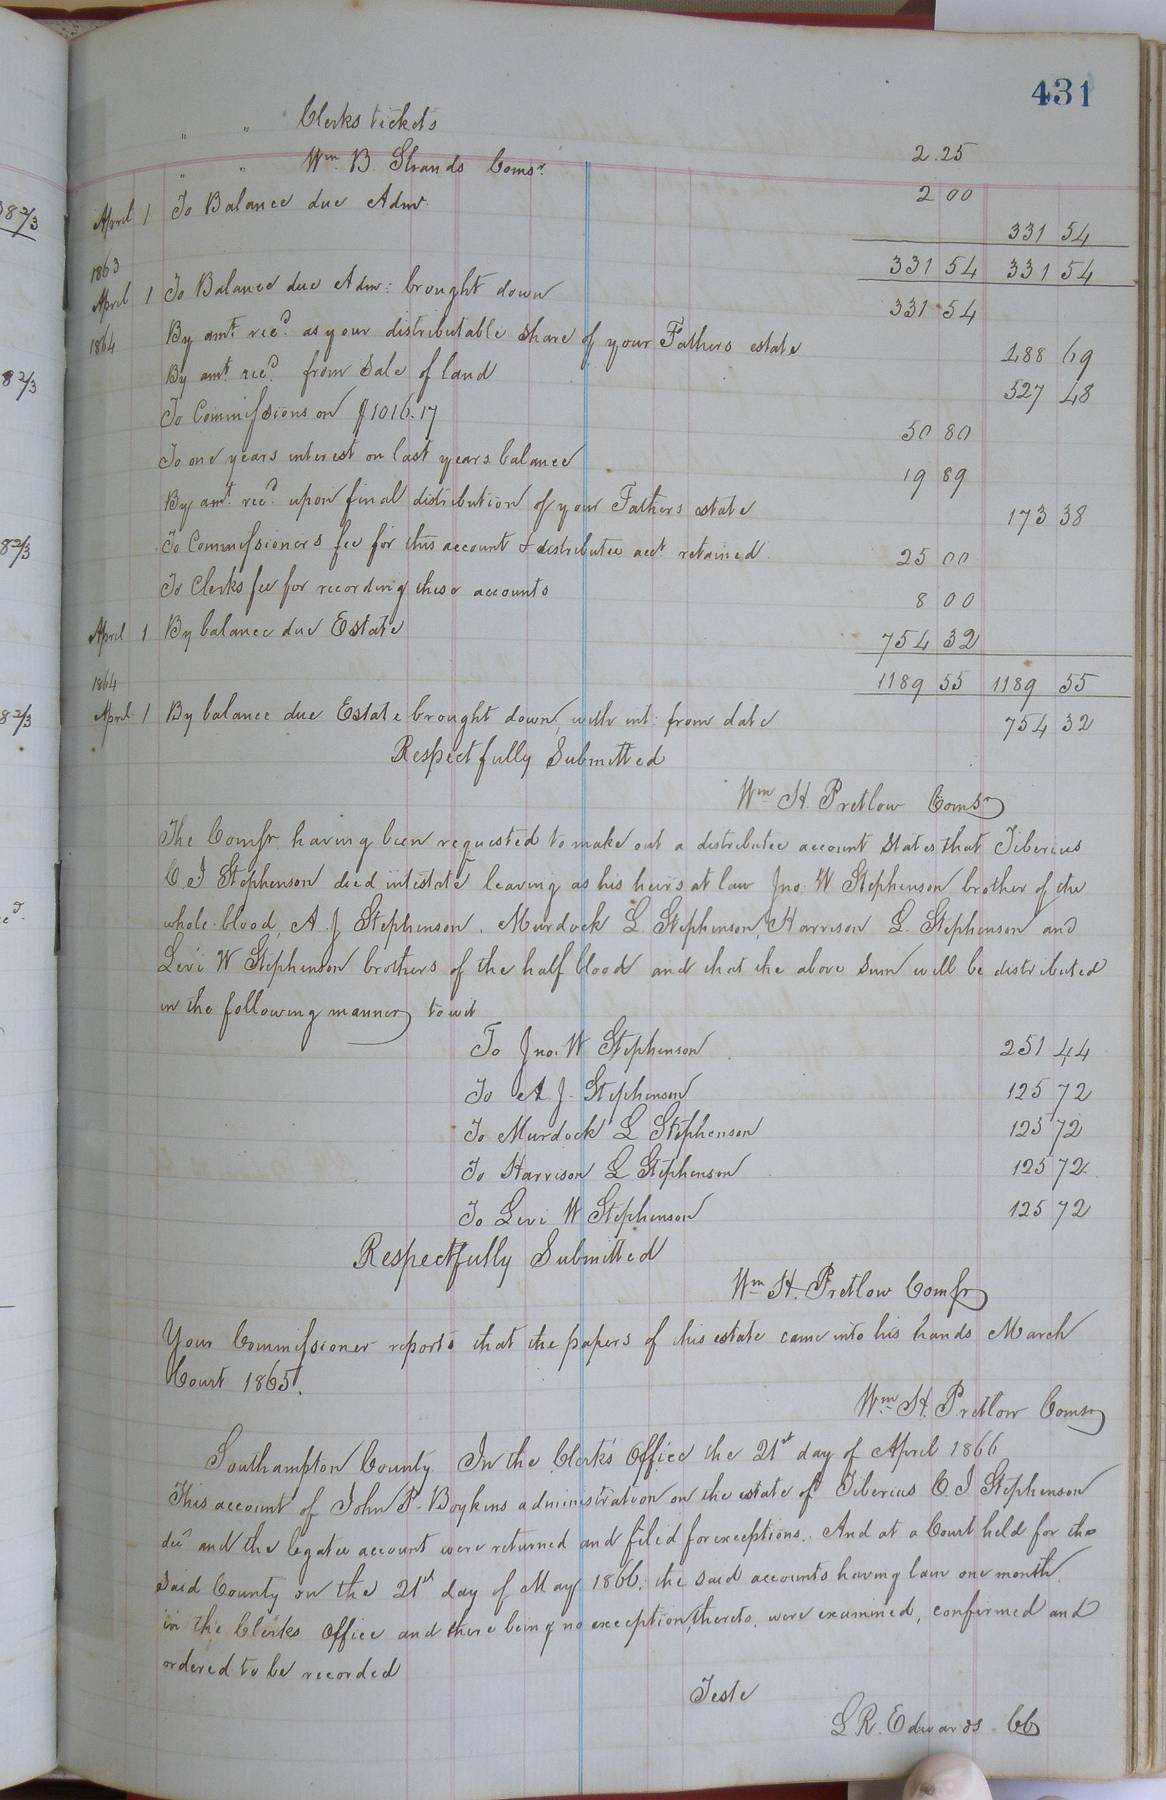 431
" " Clerks tickets 2.25
" " Wm B. Shands Comsr. 2 00
April 1 To Balance due Adm. 331 54
331 54 331 54
1863
April 1 To Balance due Adm: brought down 331 54
1864 By amt. recd. as your distributable share of your Fathers estate 488 69
By amt. recd. from sale of land 527 48
To Commissions on $1016.17 50 80
To one years interest on last years balance 19 89
By amt. recd. upon final distribution of your Fathers estate 173 38
To Commissioners fee for this account & distributee acct. retained 25 00
To Clerks fee for recording these accounts 8 00
April 1 By balance due Estate 754 32
1189 55 1189 55
1864
April 1 By balance due Estate brought down, with int: from date 754 32
Respectfully Submitted
Wm H. Pretlow Comsr
The Comsr having been requested to make out a distributee account States that Tiberius
C. I Stephenson died intestate leaving as his heirs at law Jno. W Stephenson brother of the
whole blood, A. J Stephenson, Murdock L Stephenson, Harrison L. Stephenson and
Levi W Stephenson brothers of the half blood and that the above sum will be distributed
in the following manner to wit
To Jno. W Stephenson 251 44
To A J. Stephenson 125 72
To Murdock L Stephenson 125 72
To Harrison L Stephenson 125 72
To Levi W Stephenson 125 72
Respectfully Submitted
Wm H. Pretlow Comsr
Your Commissioner reports that the papers of this estate came into his hands March
Court 1865.
Wm. H. Pretlow Comsr
Southampton County In the Clerk's Office the 21st day of April 1866
This account of John P. Boykins administration on the estate of Tiberius C. I Stephenson
decd and the legatee account were returned and filed for exceptions. And at a Court held for the
said County on the 21st day of May 1866, the said accounts having lain one month
in the Clerks Office and there being no exception, thereto, were examined, confirmed and
ordered to be recorded
Teste
L. R. Edwards CC
82/3
82/3
82/3
82/3